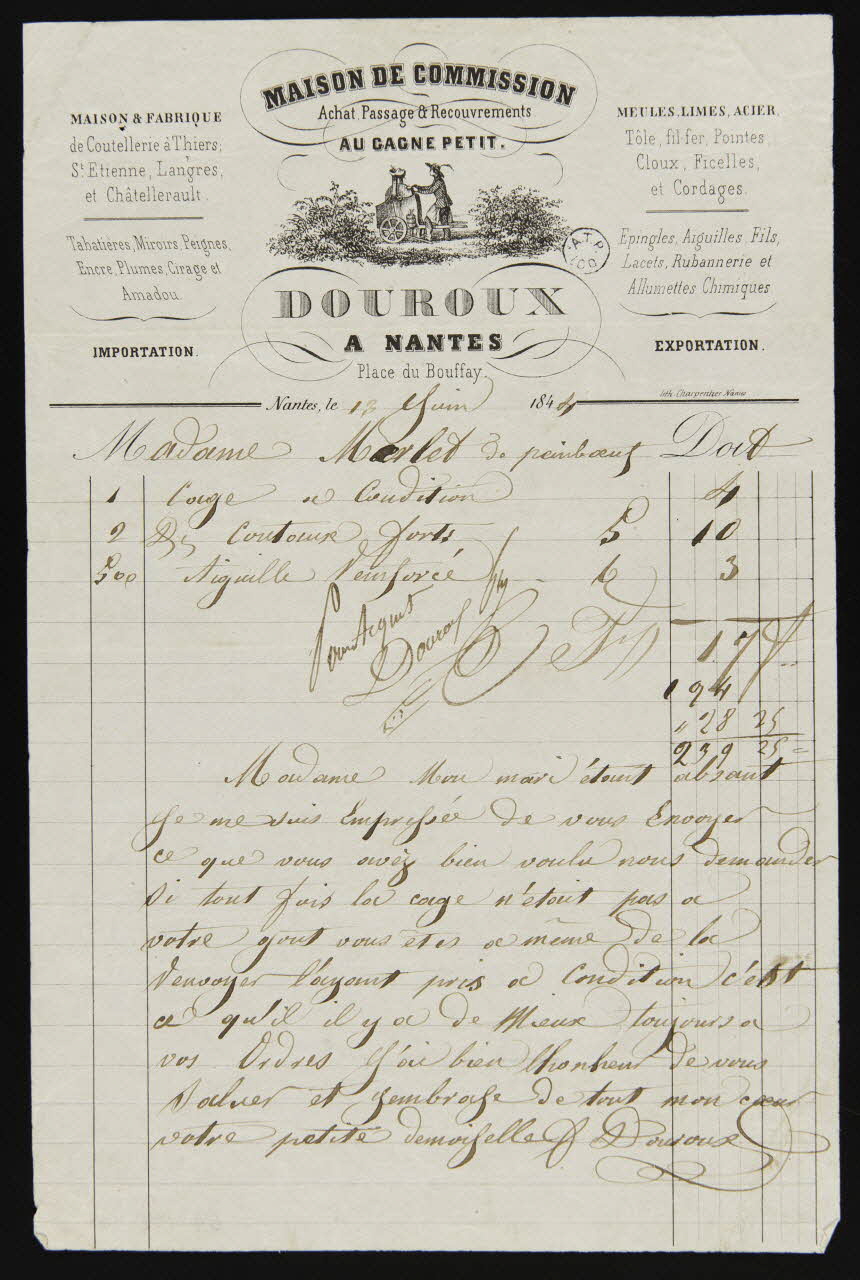 MAISON DE COMMISSION
Achat, Passage & Recouvrements
AU GAGNE PETIT.
MAISON & FABRIQUE
de Coutellerie à Thiers;
St Etienne, Langres,
et Châtellerault.
Tabatières, Miroirs, Peignes,
Encre, Plumes, Cirage et
Amadou.
IMPORTATION.
MEULES, LIMES, ACIER,
Tôle, fil-fer, Pointes,
Cloux, Ficelles,
et Cordages.
Epingles, Aiguilles, Fils,
Lacets, Rubannerie et
Allumettes Chimiques
EXPORTATION.
A.T.P.
DOUROUX
A NANTES
Place du Bouffay.
lith. Charpentier Nantes
Nantes, le 13 Juin 1844
Madame Merlet de peinboeuf Doit
1 Cage a Condition 4
2 Dz Coutaux forts 5 10
500 Aiguille Renforcé 6 3
Pour Acquit
Douroux
17
194
" 28 25
239 25
Madame Mon mari étant absant
Je me suis Empressée de vous Envoyer
ce que vous avéz bien voulu nous demander
Si tout fois la cage n'était pas a
votre gout vous etes a même de la
Renvoyer l'ayant pris a Condition c'est
ce qu'il il y a de Mieux toujours a
vos Ordres J'ai bien lhonneur de vous
Saluer et jembrasse de tout mon cœur
votre petite demoiselle Douroux